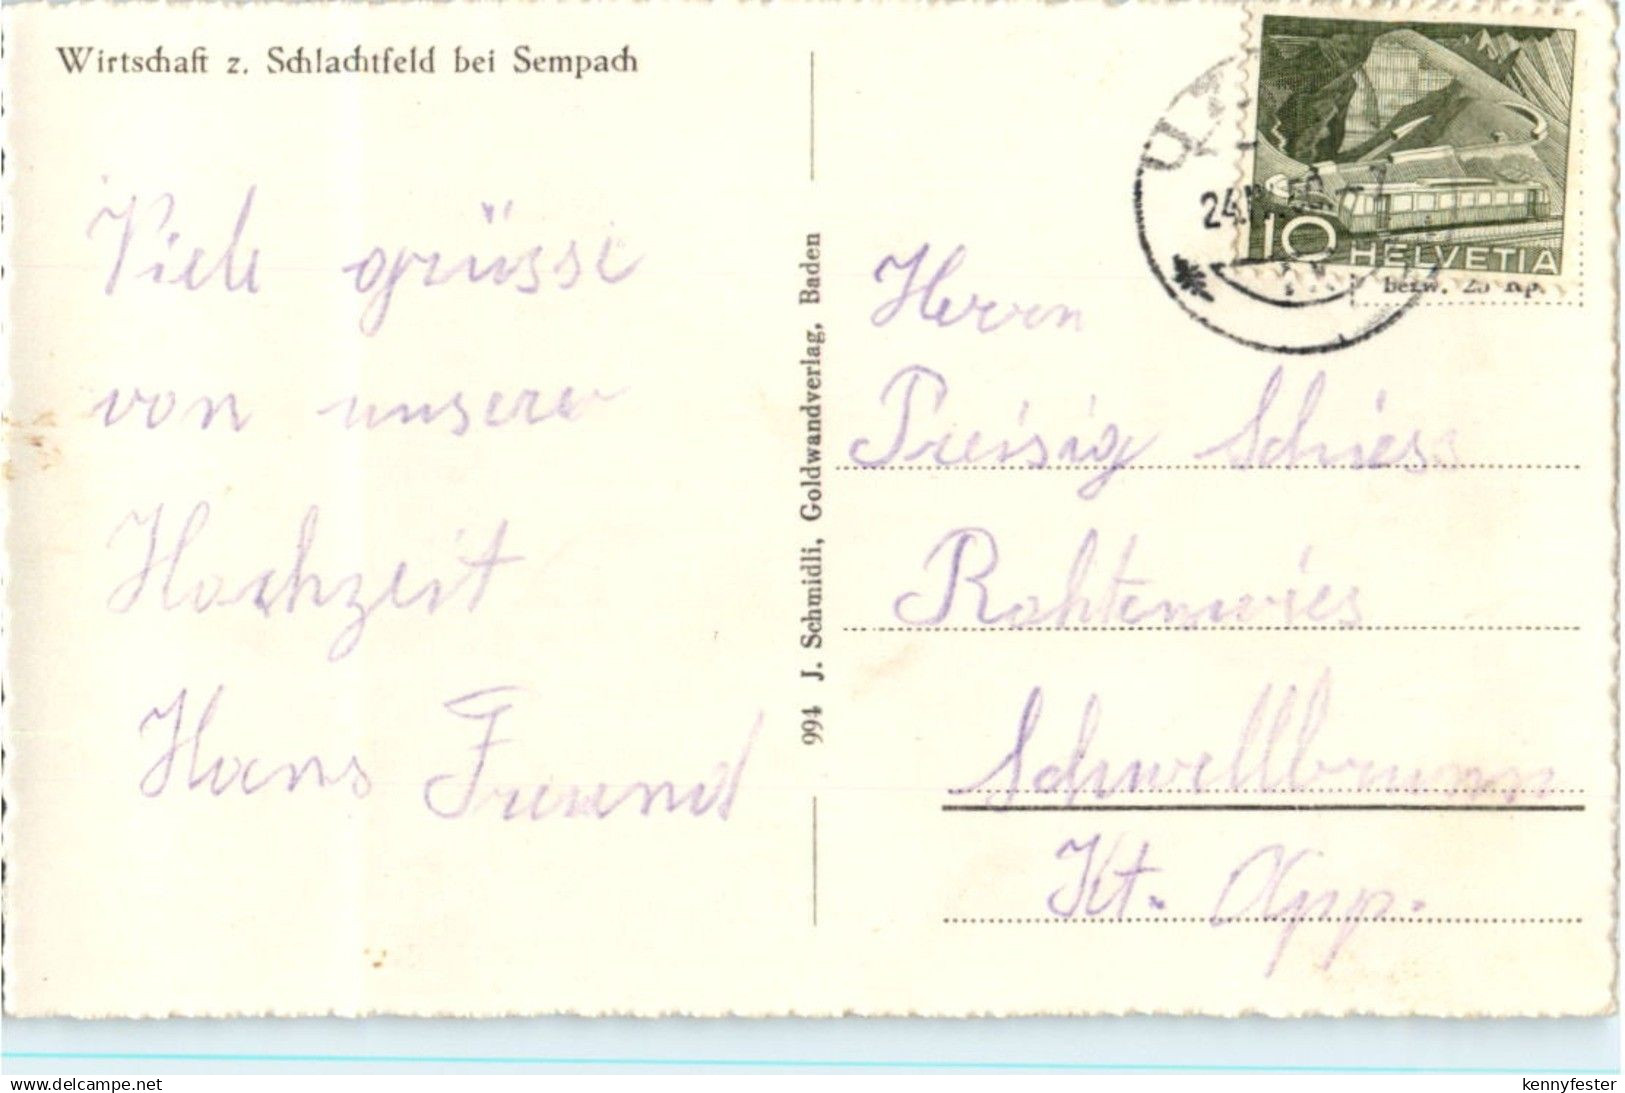 Wirtschaft z. Schlachtfeld bei Sempach
Viele grüsse
von unserer
Hochzeit
Hans Freund
994 J. Schmidli, Goldwandverlag, Baden
10 HELVETIA
bezw. 25 Rp.
24.
Herrn
Preisig Schiess
Rohtenwies
Schwellbrunn
Kt. App.
www.delcampe.net
kennyfester